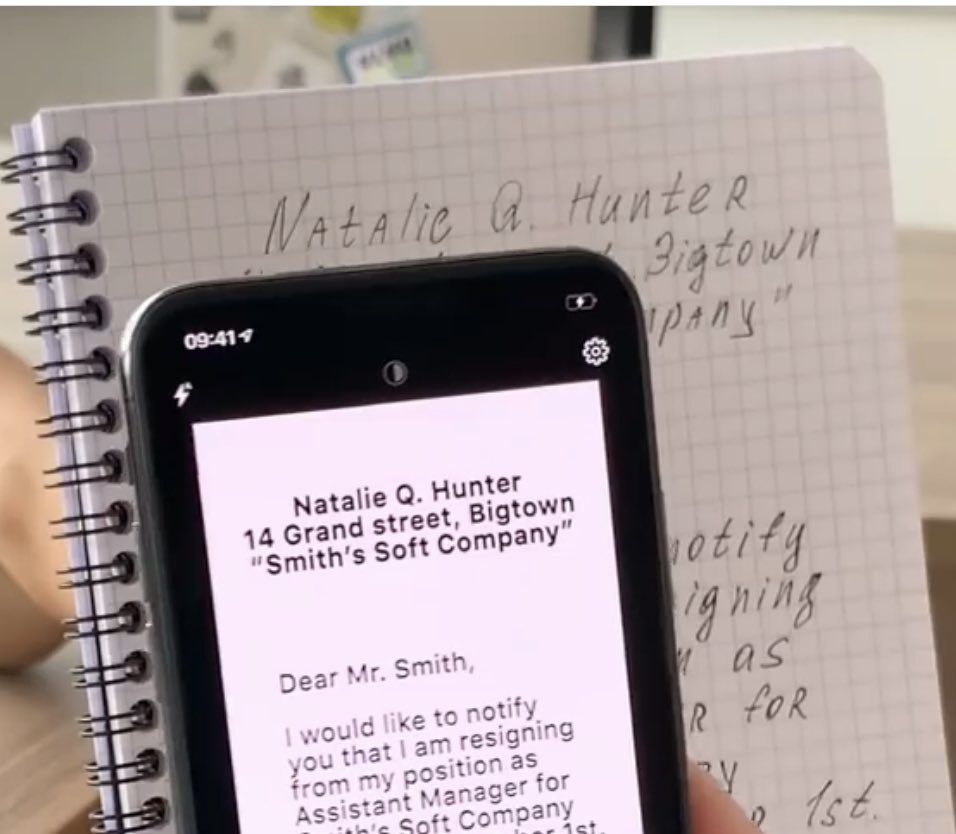 Natalie Q. Hunter
Bigtown
"
notify
as
for
1st.
09:41
Natalie Q. Hunter
14 Grand street, Bigtown
"Smith's Soft Company"
Dear Mr. Smith,
I would like to notify
you that I am resigning
from my position as
Assistant Manager for
Smith's Soft Company
1st.